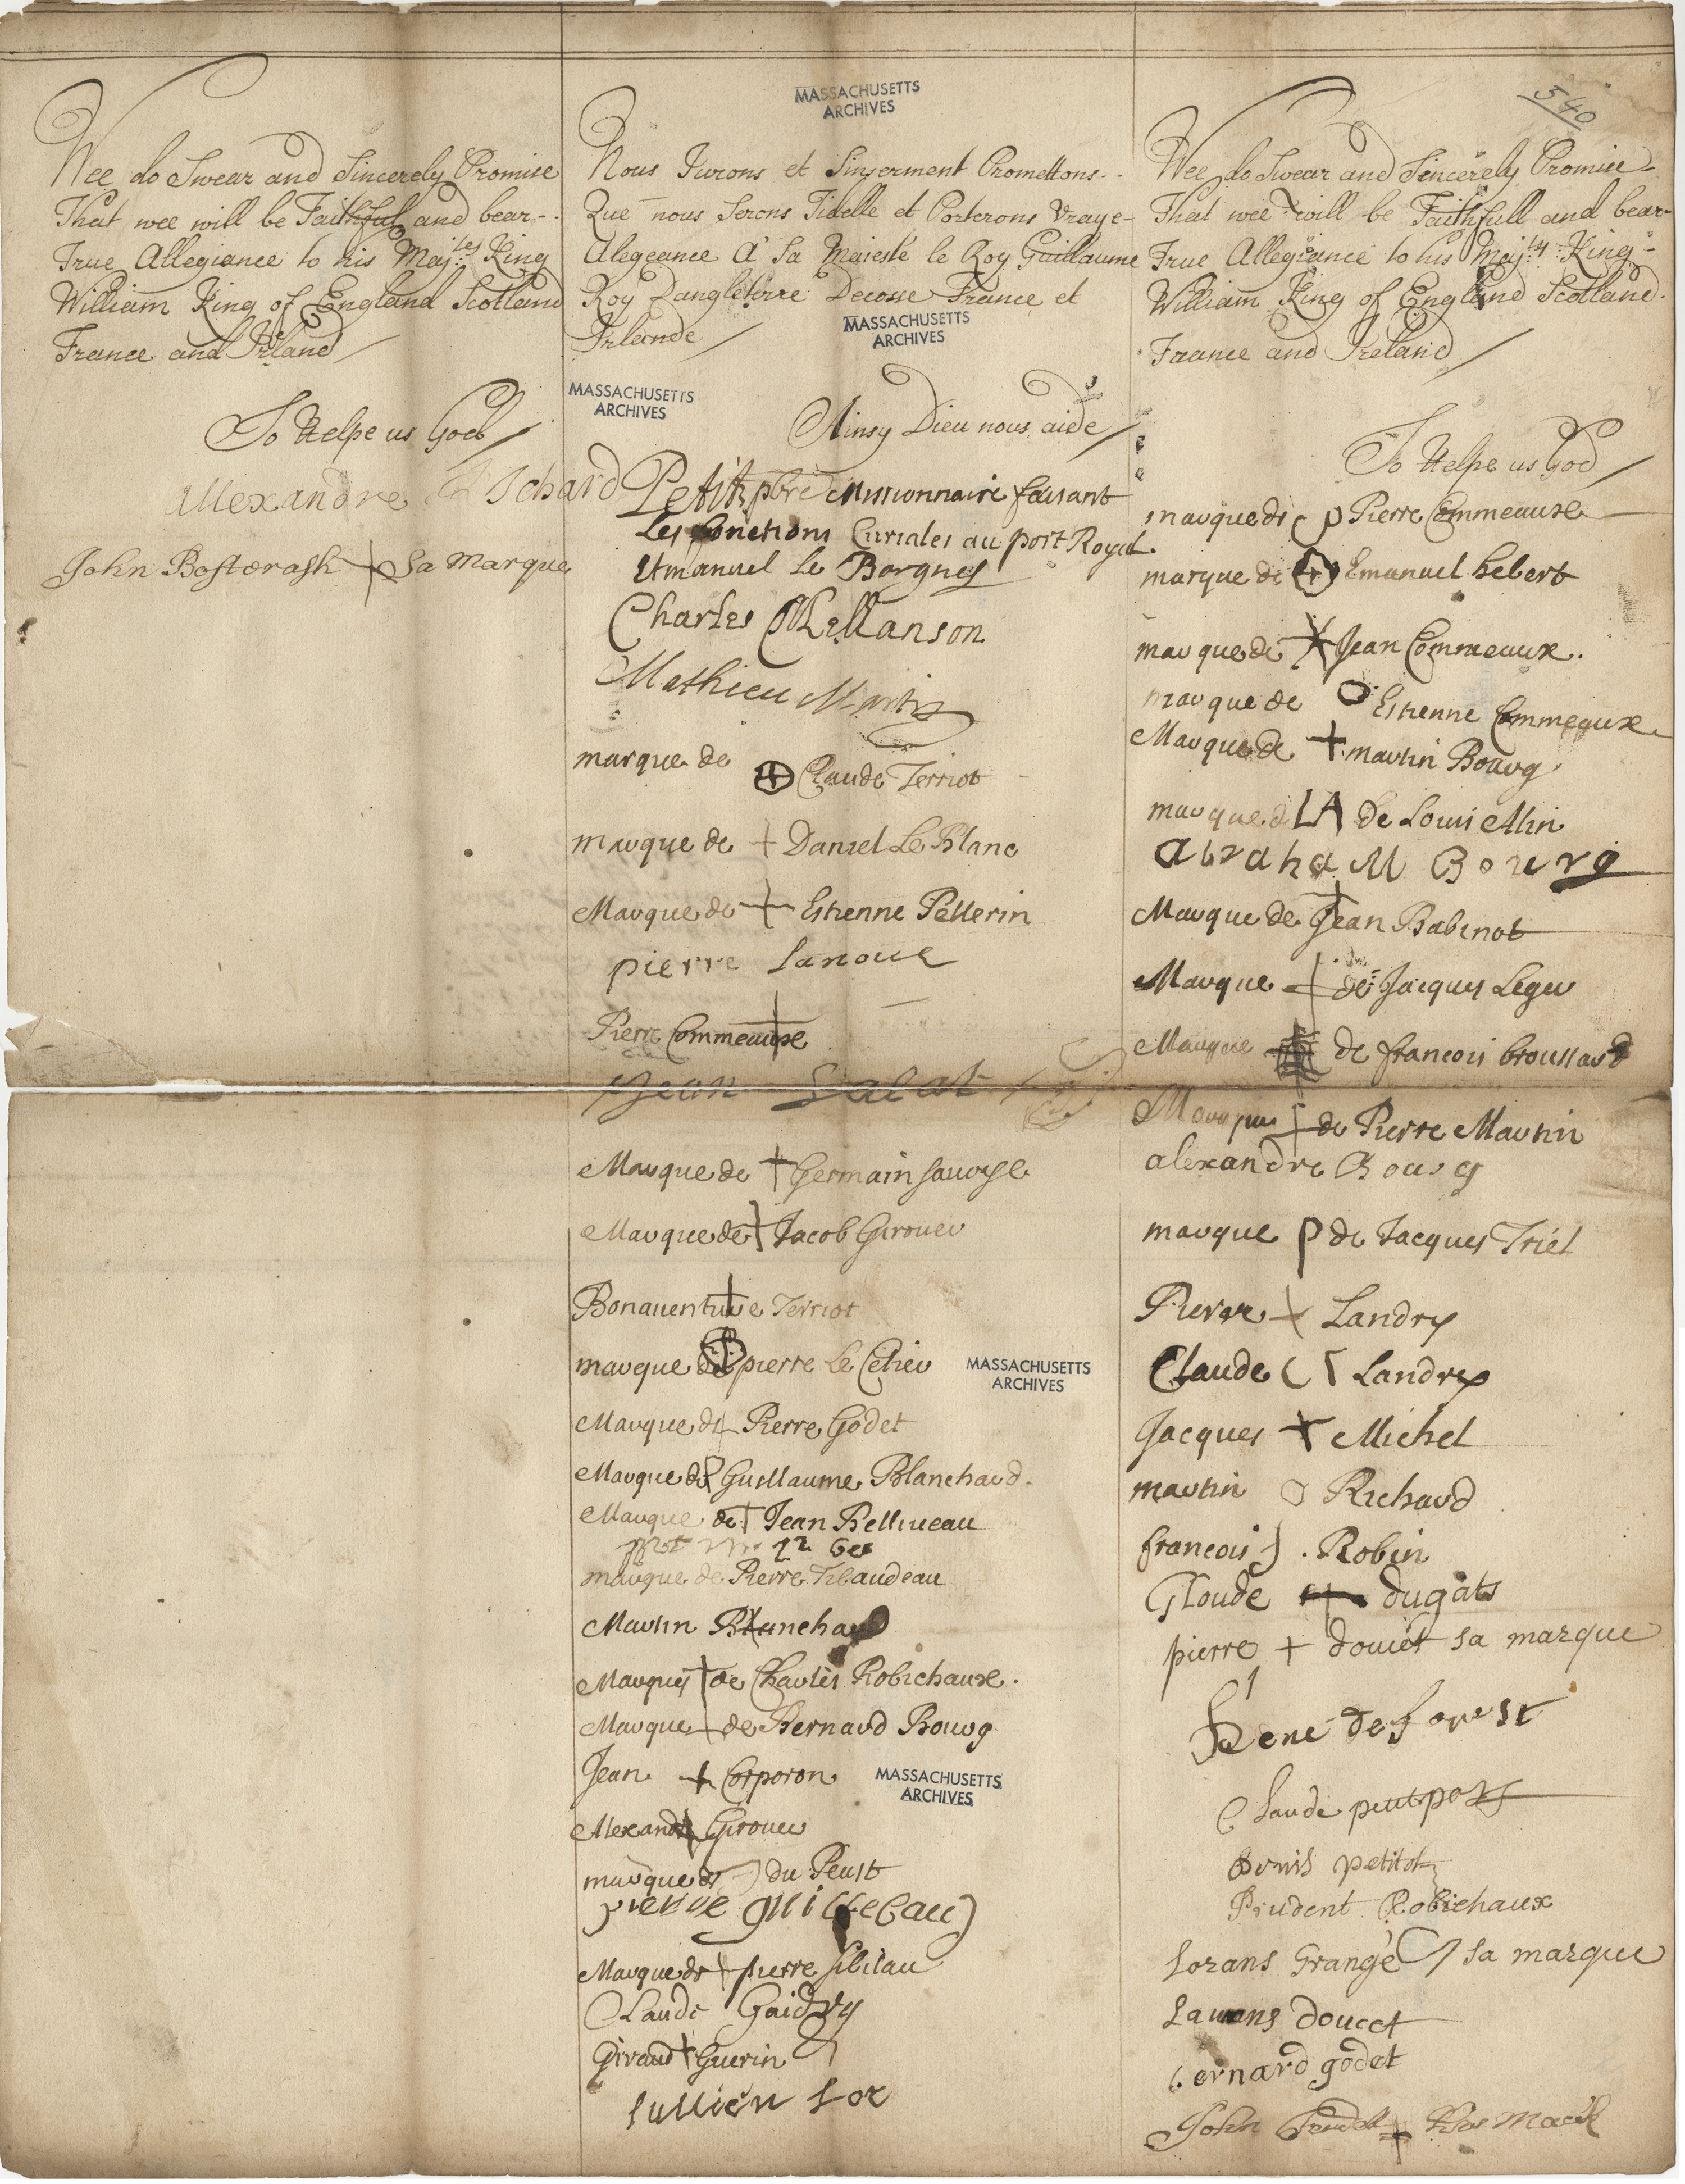 Wee do Swear and Sincerely Promise
That wee will be Faithful and bear
True Allegiance to his Maj:ties King
William King of England Scotland
France and Irland
So Helpe us God
allexandre Richard
John Bastarash + Sa Marque
MASSACHUSETTS
ARCHIVES
Nous Jurons et Sinserment Promettons
Que nous Serons Fidelle et Porterons Vraye
Alegeance A Sa Majesté le Roy Guillaume
Roy Dangleterre Decosse France et
Irlande
MASSACHUSETTS
ARCHIVES
MASSACHUSETTS
ARCHIVES
Ainsy Dieu nous aide
Petit pbre missionnaire faisant
Les fonctions Curiales au port Royal.
Emanuel Le Borgne
Charles Mellanson
Mathieu Martin
marque de Claude Terriot
marque de + Daniel Le Blanc
Marque de + Estienne Pellerin
pierre Lanoue
Pierre Commeaux
Jean
Marque de + Germain Savoye
Marque de Jacob Girouer
Bonaventure Terriot
marque de pierre Le
MASSACHUSETTS
ARCHIVES
Marque de Pierre Godet
Marque de Guillaume Blanchard
Marque de Jean Belliveau
marque de Pierre Tibaudeau
Martin Blanchard
Marque + de Charles Robichaux.
Marque + de Bernard Bourg
Jean + Corporon
MASSACHUSETTS
ARCHIVES
Alexandre Girouer
marque de du Peust
pierre guillebau
Marque de + pierre Sibilau
Claude Gaidry
Giraud + Guerin
Jullien Lor
540
Wee do Swear and Sincerely Promise
That wee will be Faithfull and bear
True Allegiance to his Maj:ty King
William King of England Scotland
France and Ireland
So Helpe us God
marque de p Pierre Commeaux
marque de Emanuel hebert
marque de X Jean Commeaux.
marque de O Estienne Commeaux
Marque de + martin Bourg
marque d LA de Louis Alin
abraham Bourg
Marque de Jean Babinot
Marque + de Jacques Leger
Marque de francois broussard
Marque + de Pierre Martin
alexandre Bourg
marque p de Jacques Triel
Pierre + Landry
Claude C Landry
Jacques + Michel
martin O Richard
francois . Robin
Gloude + dugats
pierre + doucet sa marque
Rene de forest
Claude petitpas
Denis petitot
Prudent Robichaux
Lorans Grangé sa marque
Laurans doucet
bernard godet
John + His Mark